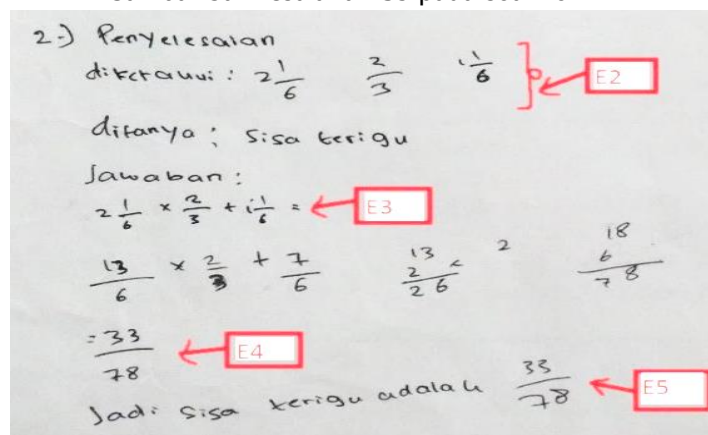 2.) Penyelesaian
diketahui : 2 1/6 2/3 1 1/6 E2
ditanya : Sisa terigu
Jawaban :
2 1/6 × 2/3 + 1 1/6 = E3
13/6 × 2/3 + 7/6 13 2 × 2 18
26 6
78
= 33/78 E4
Jadi sisa terigu adalah 33/78 E5